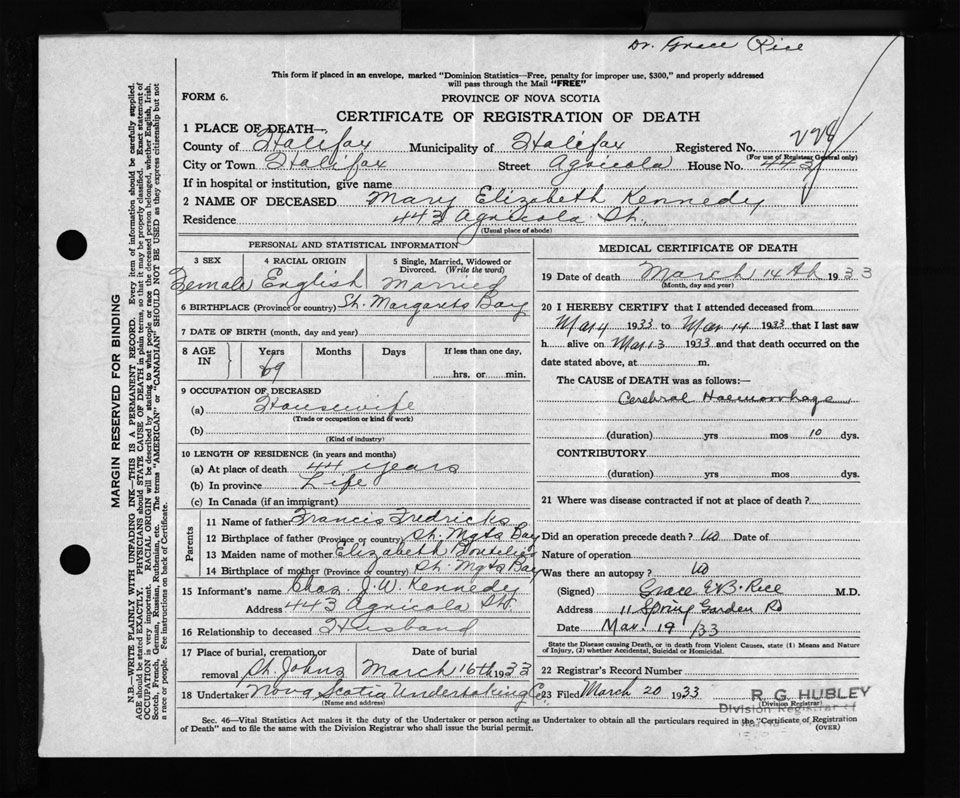 Dr. Grace Rice
This form if placed in an envelope, marked "Dominion Statistics—Free, penalty for improper use, $300," and properly addressed
will pass through the Mail "FREE"
FORM 6.
PROVINCE OF NOVA SCOTIA
CERTIFICATE OF REGISTRATION OF DEATH
1 PLACE OF DEATH—
County of Halifax Municipality of Halifax Registered No.
(For use of Registrar General only)
City or Town Halifax Street Agricola House No. 443
If in hospital or institution, give name
2 NAME OF DECEASED Mary Elizabeth Kennedy
Residence 443 Agricola St.
(Usual place of abode)
PERSONAL AND STATISTICAL INFORMATION
3 SEX 4 RACIAL ORIGIN 5 Single, Married, Widowed or
Divorced. (Write the word)
Female English Married
6 BIRTHPLACE (Province or country) St. Margarets Bay
7 DATE OF BIRTH (month, day and year)
8 AGE IN Years Months Days If less than one day,
69 hrs. or min.
9 OCCUPATION OF DECEASED
(a) Housewife
(Trade or occupation or kind of work)
(b)
(Kind of industry)
10 LENGTH OF RESIDENCE (in years and months)
(a) At place of death 44 years
(b) In province Life
(c) In Canada (if an immigrant)
Parents
11 Name of father Francis Fredricks
12 Birthplace of father (Province or country) St. Mgts Bay
13 Maiden name of mother Elizabeth
14 Birthplace of mother (Province or country) St. Mgts Bay
15 Informant's name Chas J. W. Kennedy
Address 443 Agricola St.
16 Relationship to deceased Husband
17 Place of burial, cremation or Date of burial
removal St. Johns March 16th 1933
18 Undertaker Nova Scotia Undertaking Co.
(Name and address)
MEDICAL CERTIFICATE OF DEATH
19 Date of death March 14th 1933
(Month, day and year)
20 I HEREBY CERTIFY that I attended deceased from
Mar 4 1933 to Mar 14 1933 that I last saw
h alive on Mar 13 1933 and that death occurred on the
date stated above, at m.
The CAUSE of DEATH was as follows:—
Cerebral Haemorrhage
(duration) yrs mos 10 dys.
CONTRIBUTORY
(duration) yrs mos dys.
21 Where was disease contracted if not at place of death?
Did an operation precede death? No Date of
Nature of operation
Was there an autopsy? No
(Signed) Grace E.B. Rice M.D.
Address 11 Spring Garden Rd
Date Mar. 19 /33
State the Disease causing Death, or in death from Violent Causes, state (1) Means and
Nature of Injury, (2) whether Accidental, Suicidal or Homicidal.
22 Registrar's Record Number
23 Filed March 20 1933
R. G. HUBLEY
Division Registrar
(Division Registrar)
Sec. 46—Vital Statistics Act makes it the duty of the Undertaker or person acting as Undertaker to obtain all the particulars required in the "Certificate of Registration
of Death" and to file the same with the Division Registrar who shall issue the burial permit.
(OVER)
MARGIN RESERVED FOR BINDING
N.B.—WRITE PLAINLY WITH UNFADING INK—THIS IS A PERMANENT RECORD. Every item of information should be carefully supplied.
AGE should be stated EXACTLY. PHYSICIANS should STATE CAUSE OF DEATH in plain terms, so that it may be properly classified. Exact statement of
OCCUPATION is very important. RACIAL ORIGIN will be described by stating to what people or race the deceased person belonged, whether English, Irish,
Scotch, French, German, Russian, Ruthenian, etc. The terms "AMERICAN" or "CANADIAN" SHOULD NOT BE USED as they express citizenship but not
a race or people. See instructions on back of Certificate.